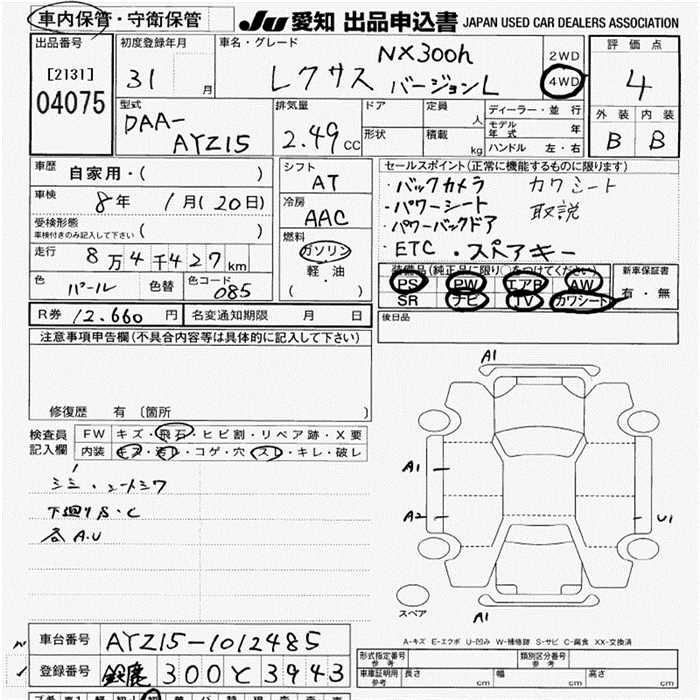 車内保管・守衛保管
JU 愛知 出品申込書 JAPAN USED CAR DEALERS ASSOCIATION
出品番号
[2131]
04075
初度登録年月
31 月
車名・グレード
NX300h
レクサス バージョンL
2WD
4WD
評価点
4
外装 内装
B B
型式
DAA-
AYZ15
排気量
2.49 CC
ドア
形状
定員 人
積載 kg
ディーラー・並行
モデル年式 年
ハンドル 左・右
車歴 自家用・( )
車検 8年 1月(20日)
受検形態
車検付きのみ記入して下さい ( )
走行 8万4千427km
色 パール 色替 色コード 085
シフト
AT
冷房
AAC
燃料
ガソリン
軽・油
( ・ )
セールスポイント(正常に機能するものに限ります)
・バックカメラ カワシート
・パワーシート 取説
・パワーバックドア
・ETC ・スペアキー
装備品(純正品に限り○をつけてください)
PS PW エアB AW
SR ナビ TV カワシート
新車保証書
有・無
R券 12,660 円 名変通知期限 月 日
後日品
注意事項申告欄(不具合内容等は具体的に記入して下さい)
修復歴 有 〔箇所 〕
検査員記入欄
FW キズ・飛石・ヒビ割・リペア跡・X要
内装 キズ・汚レ・コゲ・穴・スレ・キレ・破レ
シミ・シートシワ
下廻りS・C
各A.U
A1
A1
A2
U1
A1
スペア
A-キズ E-エクボ U-凹み W-補修跡 S-サビ C-腐食 XX-交換済
車台番号 AYZ15-1012485
登録番号 鈴鹿 300 と 3943
型式指定番号 参考
類別区分番号 参考
車庫証明用 参考 長さ cm 幅 cm 高さ cm